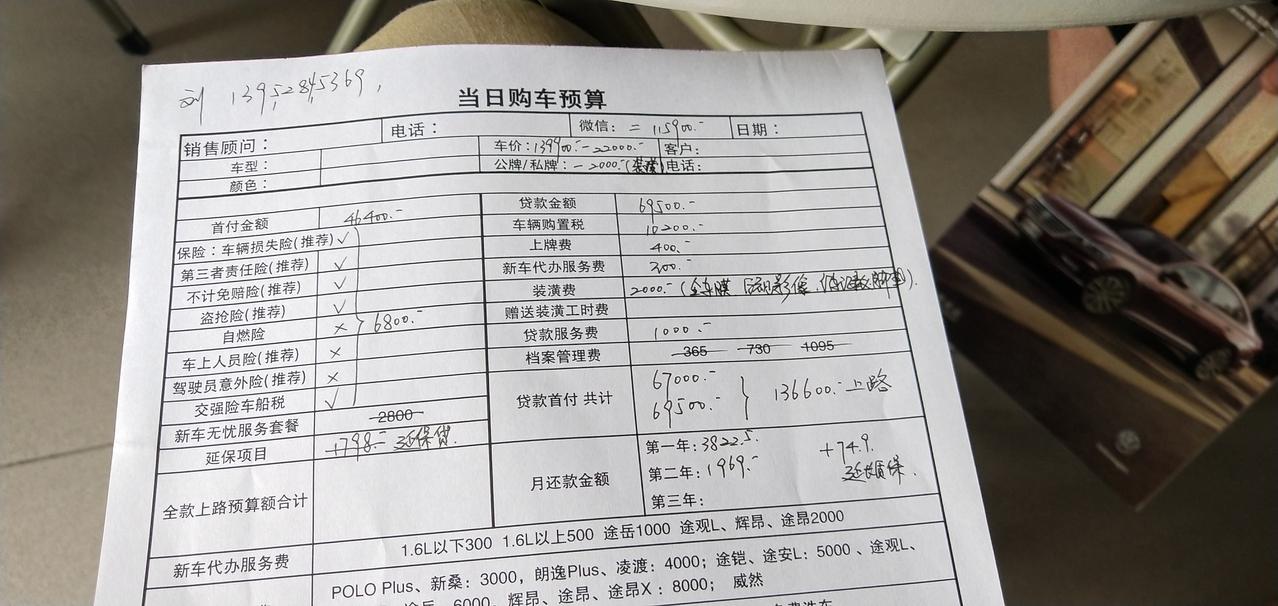 刘 13952845369,
当日购车预算
销售顾问： 电话： 微信： = 115900.- 日期：
车型： 车价：139900.- -22000.- 客户：
颜色： 公牌/私牌：-2000.(装潢) 电话：
首付金额 46400.- 贷款金额 69500.-
保险：车辆损失险(推荐) ✓ 车辆购置税 10200.-
第三者责任险(推荐) ✓ 上牌费 400.-
不计免赔险(推荐) ✓ 新车代办服务费 300.-
盗抢险(推荐) ✓ 装潢费 2000.-
自燃险 × 6800.- 赠送装潢工时费
车上人员险(推荐) × 贷款服务费 1000.-
驾驶员意外险(推荐) × 档案管理费 365 730 1095
交强险车船税 ✓ 贷款首付 共计 67000.- 69500.- } 136600.- 上路
新车无忧服务套餐 2800
延保项目 1798.- 延保费.
全款上路预算额合计 月还款金额 第一年：3822.5.
第二年：1969.- +74.9.
第三年： 延长质保.
新车代办服务费 1.6L以下300 1.6L以上500 途岳1000 途观L、辉昂、途昂2000
POLO Plus、新桑：3000，朗逸Plus、凌渡：4000；途铠、途安L：5000 、途观L、
6000、辉昂、途昂、途昂X：8000； 威然